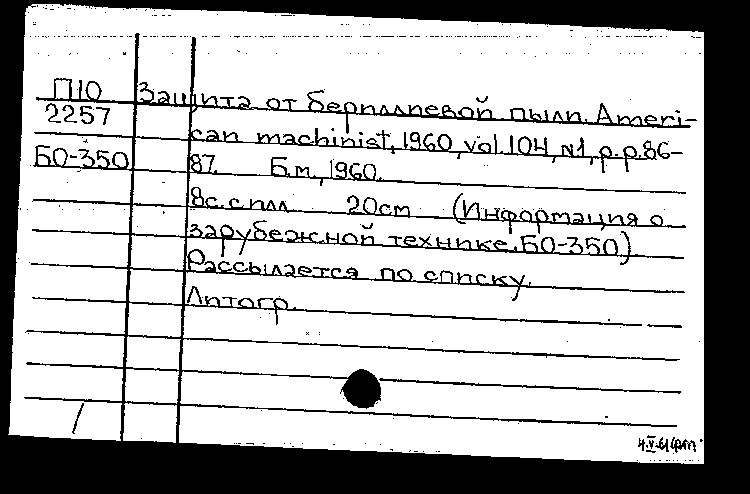 П10 Защита от бериллиевой пыли. Ameri-
2257 can machinist, 1960, vol. 104, N1, p.p. 86-
БО-350 87. Б.м., 1960.
8с. с илл 20см (Информация о
зарубежной технике. БО-350)
Рассылается по списку.
Литогр.